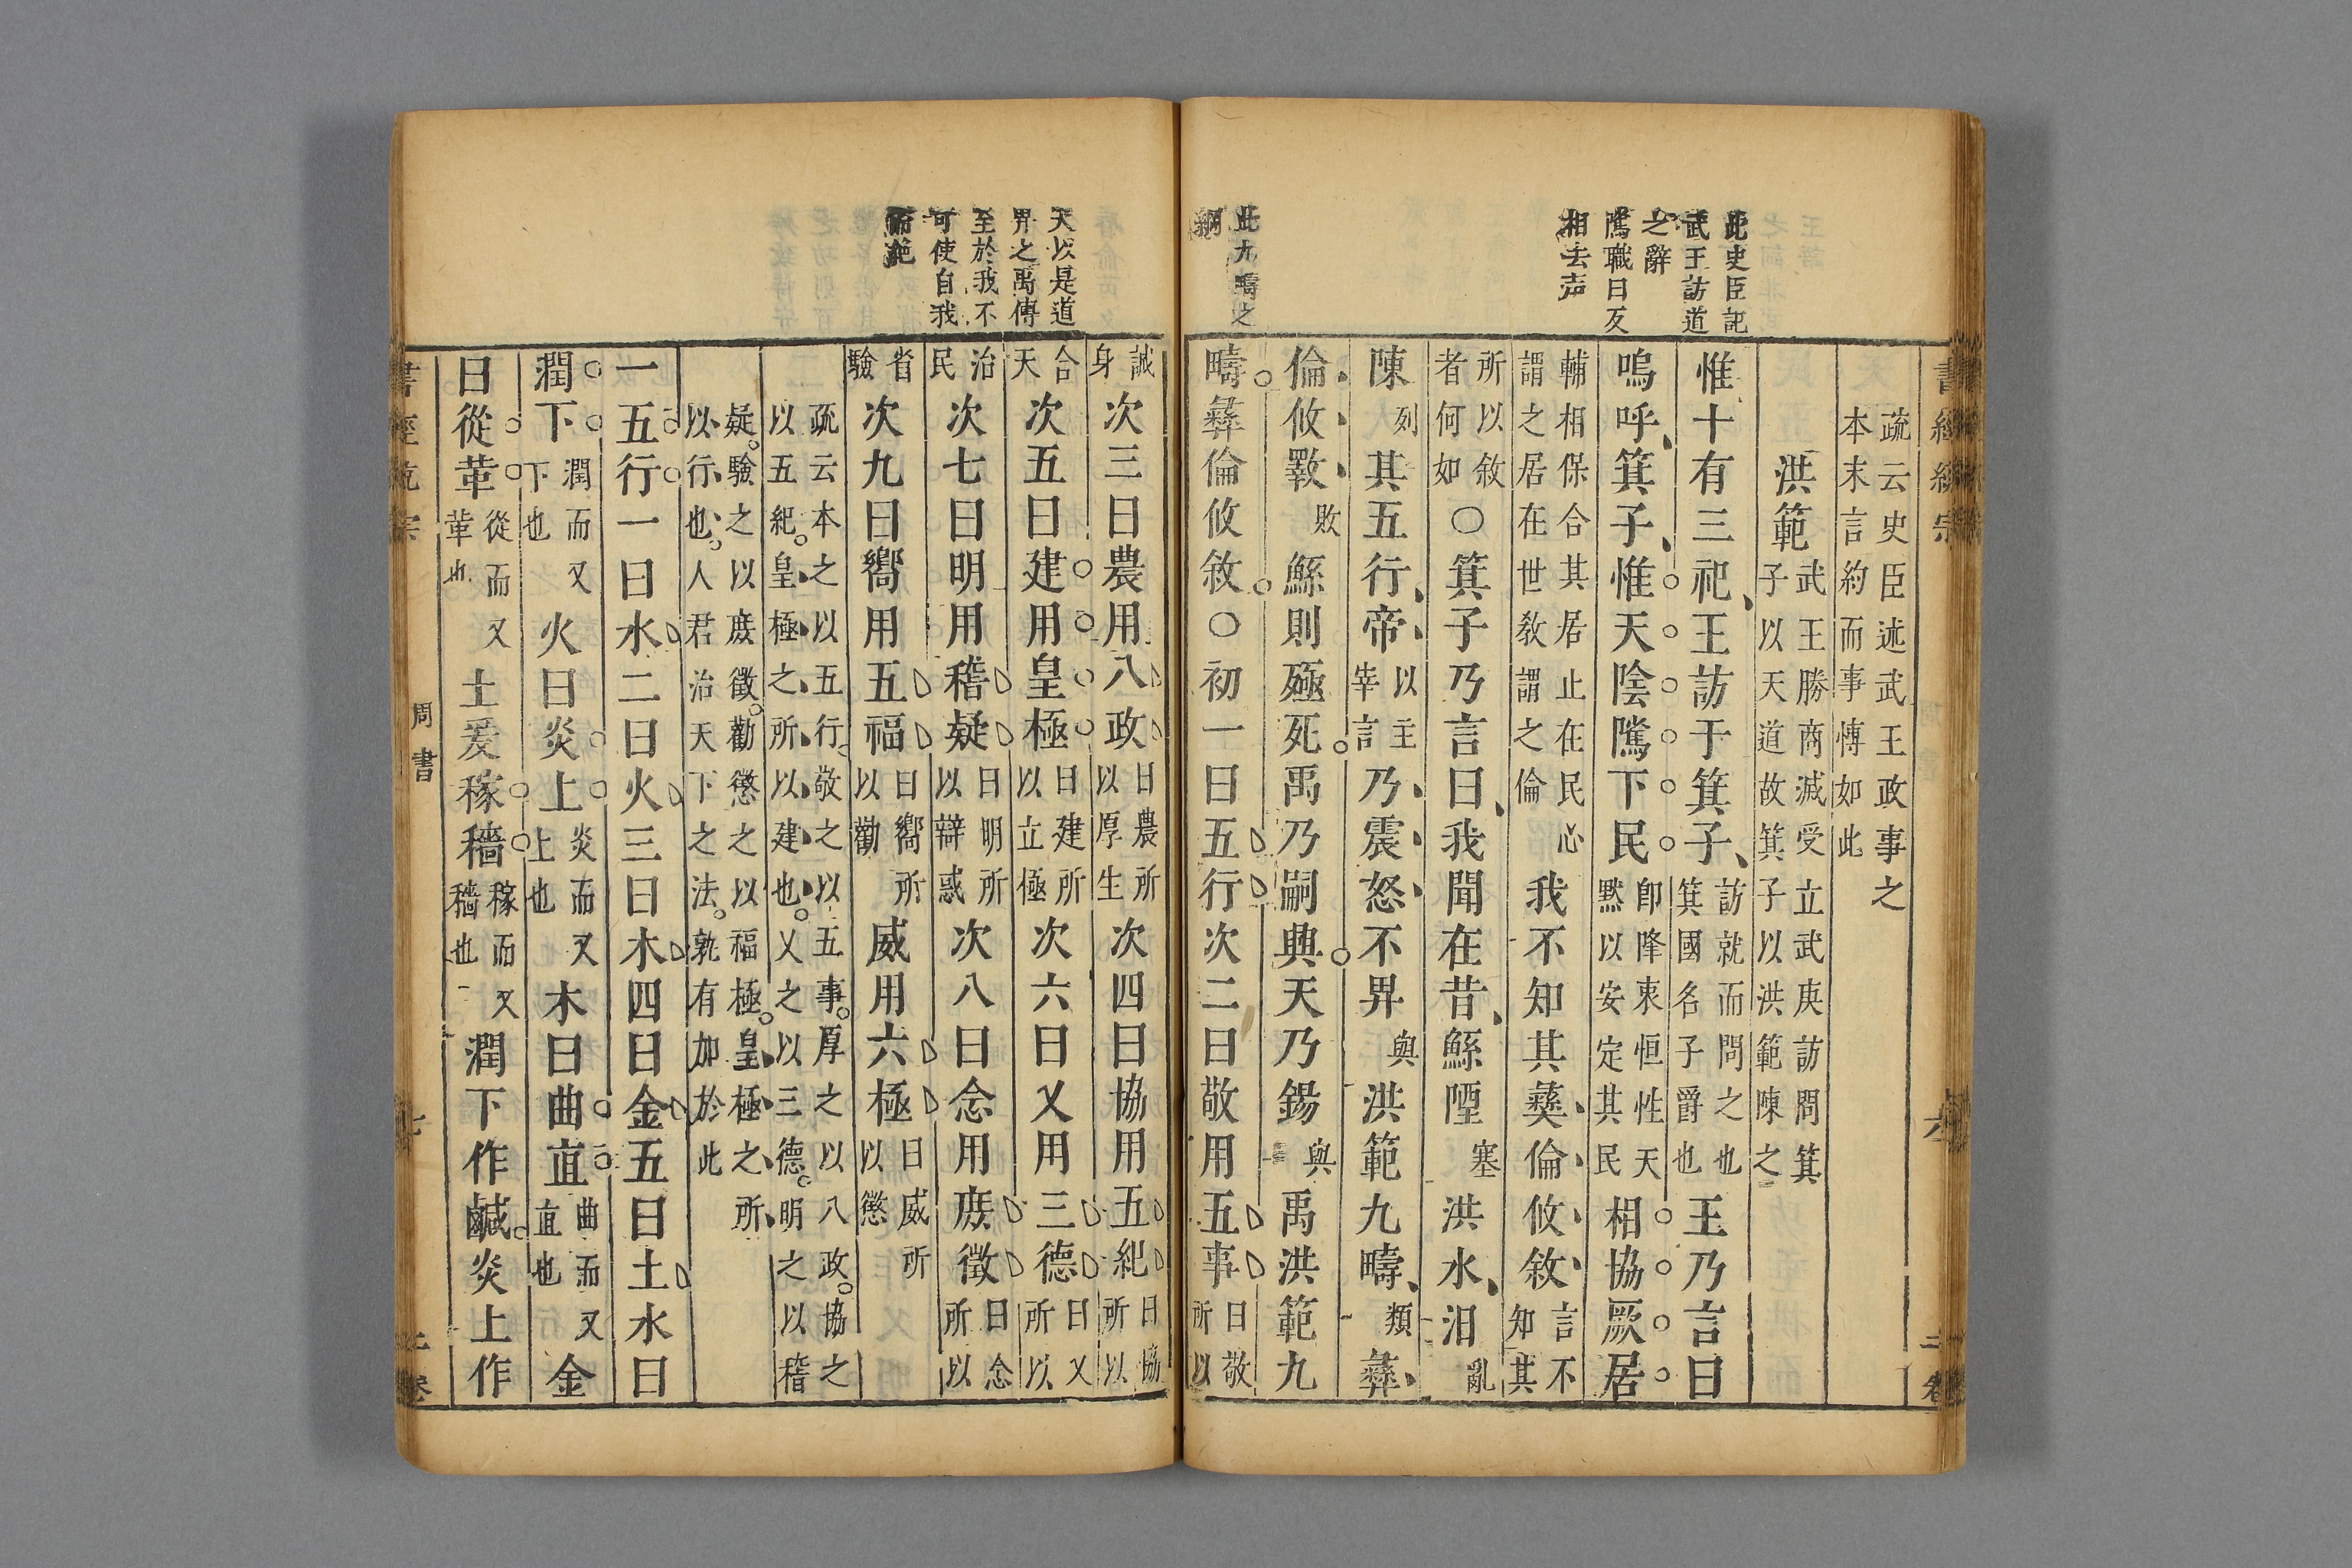 此史臣記
武王訪道
之辭
隲職日反
相去声
此九疇之
綱
書經統宗
六
疏云史臣述武王政事之
本末言約而事愽如此
洪範武王勝商滅受立武庚訪問箕子以天道故箕子以洪範陳之
惟十有三祀王訪于箕子訪就而問之也箕國名子爵也王乃言曰
嗚呼箕子惟天陰隲下民卽降衷恒性天默以安定其民相協厥居
輔相保合其居止在民心謂之居在世敎謂之倫我不知其彝倫攸敘言不知其
所以敘者何如○箕子乃言曰我聞在昔鯀陻塞洪水汨亂
陳列其五行帝以主宰言乃震怒不畀與洪範九疇類彝
倫攸斁敗鯀則殛死禹乃嗣興天乃錫與禹洪範九
疇彝倫攸敘○初一曰五行次二曰敬用五事曰敬所以
天以是道
畀之禹傳
至於我不
可使自我
而絶
誠身次三曰農用八政曰農所以厚生次四曰協用五紀曰協所以
合天次五曰建用皇極曰建所以立極次六曰乂用三德曰乂所以
治民次七曰明用稽疑曰明所以辯惑次八曰念用庶徵曰念所以
省驗次九曰嚮用五福曰嚮所以勸威用六極曰威所以懲
疏云本之以五行敬之以五事厚之以八政協之
以五紀皇極之所以建也乂之以三德明之以稽
疑驗之以庶徵勸懲之以福極皇極之所
以行也人君治天下之法孰有加於此
一五行一曰水二曰火三曰木四曰金五曰土水曰
潤下潤而又下也火曰炎上炎而又上也木曰曲直曲而又直也金
曰從革從而又革也土爰稼穡稼而又穡也潤下作鹹炎上作
周書